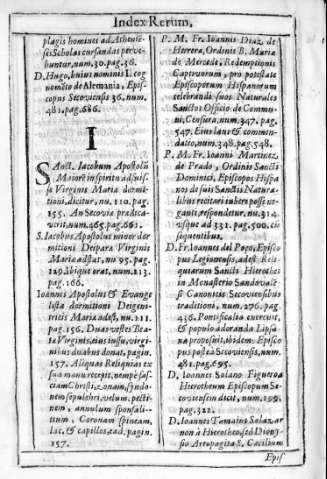 Index Rerum,
plagis homines ad Athenie-
si Scholas cursandas prove-
huntur, num. 30. pag. 36.
D. Hugo, huius nominis I. cog
nomẽto de Alemania, Epis-
copus Secoviensis 36. num.
481. pag. 686.
I
SAnct. Iacobum Apostolũ
Maiorẽ in spiritu adfuis-
se Virginis Mariæ dormi-
tioni, dicitur, nu. 110. pag.
155. An Secoviæ prædica-
verit, num. 465. pag. 661.
S. Iacobus Apostolus minor dor
mitioni Deiparæ Virginis
Mariæ adstat, nu. 95. pag.
129. ibique erat, num. 113.
pag. 166.
Ioannis Apostolus & Evange
lista dormitioni Deigeni-
tricis Mariæ adest, nu. 111.
pag. 156. Duas vestes Bea-
tæ Virginis, eius iussu, virgi-
nibus duabus donat, pagin.
157. Aliquas Reliquias ex
sua manu recepit, nempè fas-
ciam Christi, zonam, syndo-
nem sepulchri, velum, pecti-
nem, annulum sponsali-
tium, Coronam spineam,
lac, & capillos, ead. pagin.
157.
P. M. Fr. Ioannis Diaz, de
Herrera, Ordinis B. Mariæ
de Mercede, Redemptionis
Captivorum, pro potestate
Episcoporum Hispanorum
celebrandi suos Naturales
Sanctos Officio de Commu-
ni, Censura, num. 347. pag.
547. Eius laus & commen-
datio, num. 348. pag. 548.
P. M. Fr. Ioanni Martinez,
de Prado, Ordinis Sancti
Dominici, Episcopos Hispa
nos de suis Sanctis Natura-
libus recitari iubere posse in-
ganti, respondetur, nu. 314.
vsque ad 331. pag. 500. cũ
sequentibus.
D. Fr. Ioannes del Pozo, Epis-
pus Legionensis, adest Reli-
quarum Sancti Hierothei
in Monasterio Sandovalẽ
si Canonticis Secoviensibus
traditioni, num. 276. pag.
436. Pontificalia exercuit,
& populo adoranda Lipsa-
na proposuit, ibidem. Episco
pus posteà Secoviensis, num.
481. pag. 695.
D. Ioannes Solano Figueroa
Hierotheum Episcopum Se-
coviensem dicit, num. 199.
pag. 322.
D. Ioannes Tamaius Salazar
non à Hierotheo, sed Diony-
sio Areopagita S. Cæcilium
Epis